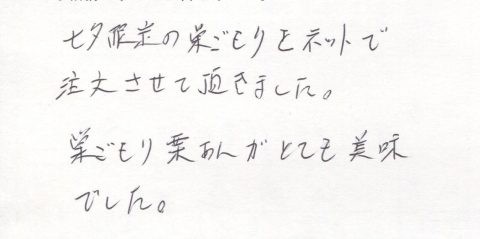 七夕限定の巣ごもりをネットで
注文させて頂きました。
巣ごもり栗あんがとても美味
でした。